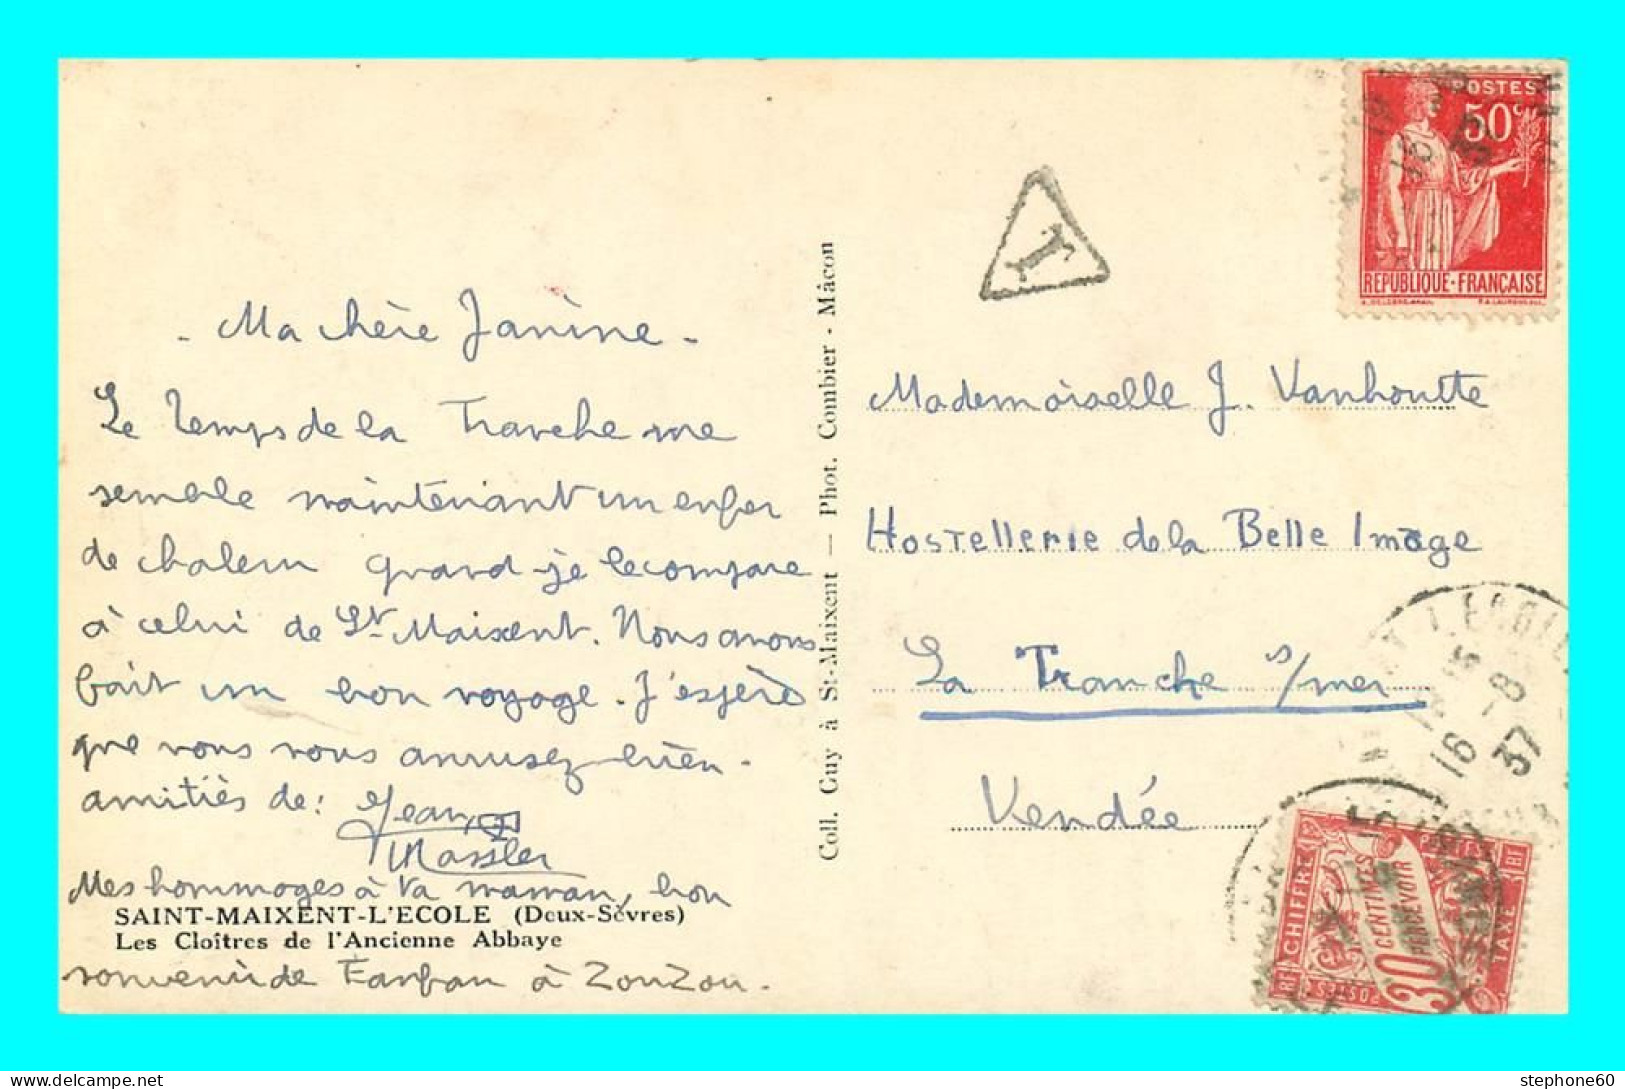 - Ma chère Janine -
Le temps de la Tranche me
semble maintenant un enfer
de chaleur quand je le compare
à celui de St Maixent. Nous avons
fait un bon voyage. J'espère
que vous vous amusez bien.
amitiés de: Jean
Mes hommages à ta maman, bon
SAINT-MAIXENT-L'ECOLE (Deux-Sèvres)
Les Cloîtres de l'Ancienne Abbaye
souvenir de Fanfan à ZouZou.
Coll. Guy à St-Maixent — Phot. Combier - Mâcon
T
POSTES
50c
RÉPUBLIQUE-FRANÇAISE
Mademoiselle J. Vanhoutte
Hostellerie de la Belle Image
La Tranche s/mer
Vendée
16 -8
37
CHIFFRE
TAXE
30 CENTIMES
A PERCEVOIR
POSTES
stephone60